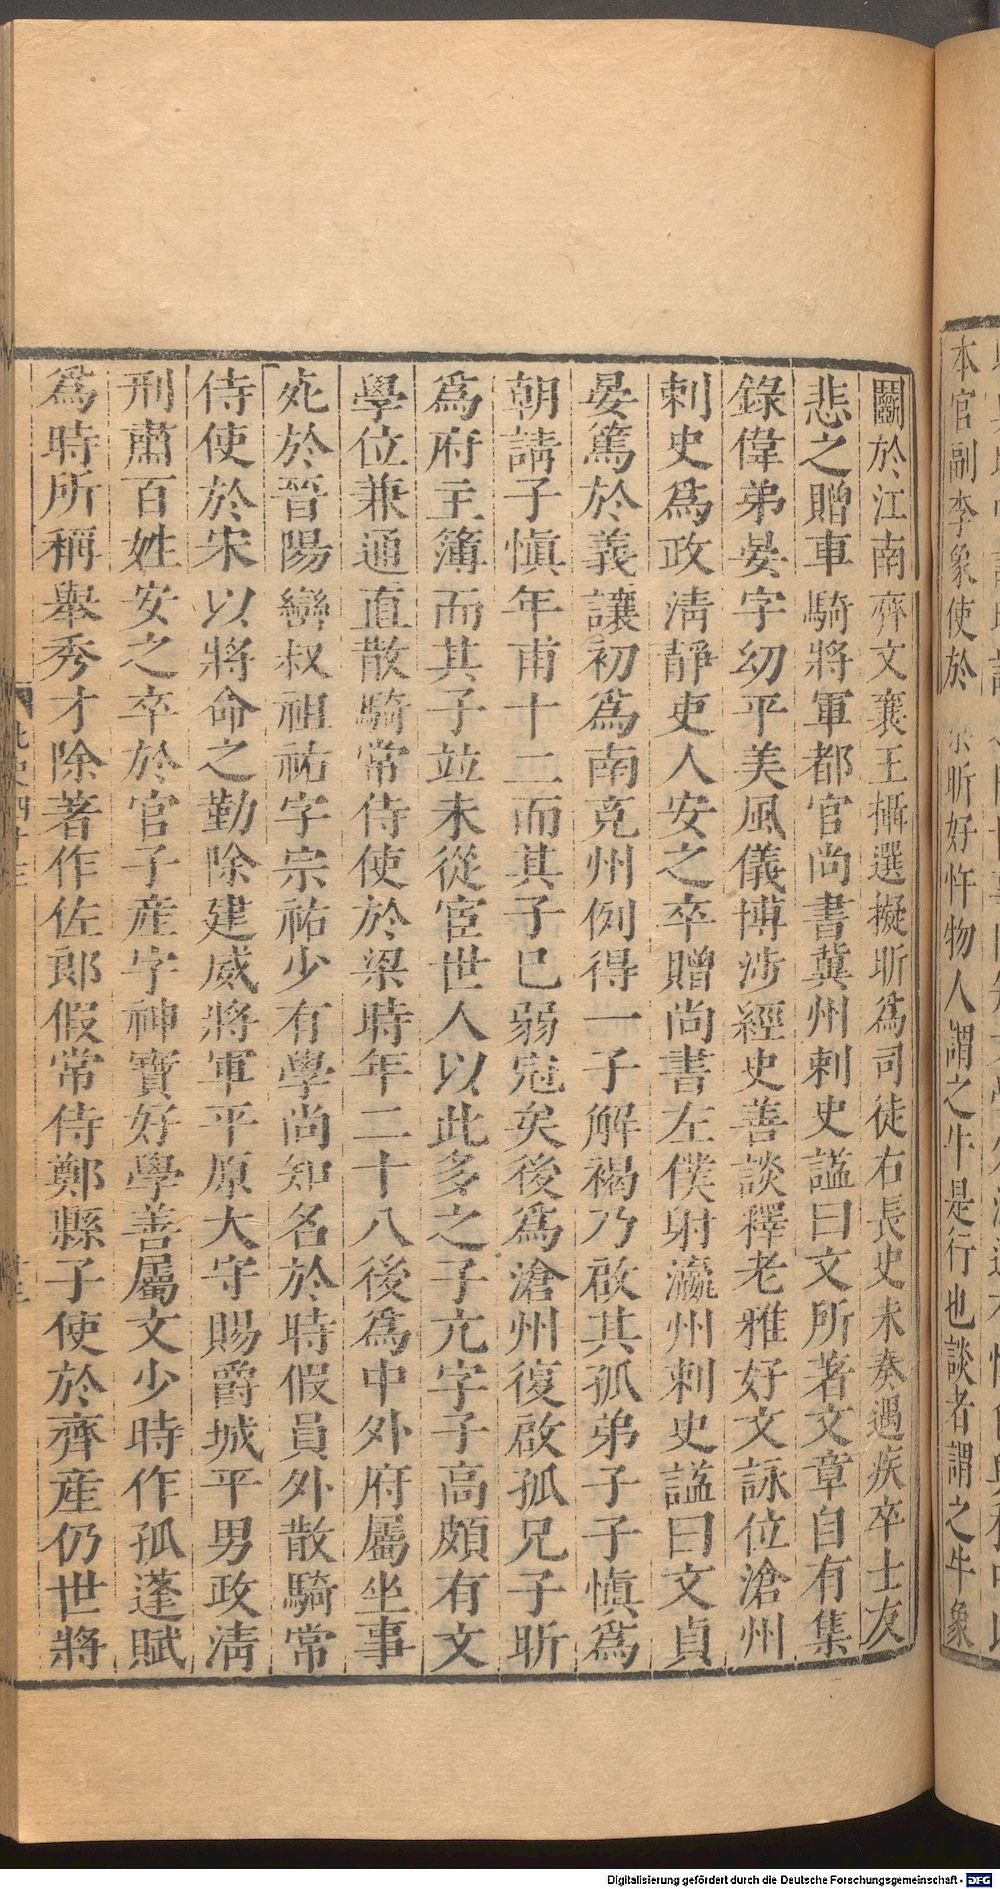 本官副李象使於梁昕好忤物人謂之牛是行也談者謂之牛象
鬭於江南齊文襄王攝選擬昕爲司徒右長史未奏遇疾卒士友
悲之贈車騎將軍都官尚書冀州刺史謚曰文所著文章自有集
錄偉弟晏字幼平美風儀博涉經史善談釋老雅好文詠位滄州
刺史爲政清靜吏人安之卒贈尚書左僕射瀛州刺史謚曰文貞
晏篤於義讓初爲南兖州例得一子解褐乃啟其孤弟子子慎爲
朝請子慎年甫十二而其子已弱冠矣後爲滄州復啟孤兄子昕
爲府主簿而其子竝未從宦世人以此多之子亢字子高頗有文
學位兼通直散騎常侍使於梁時年二十八後爲中外府屬坐事
死於晉陽巒叔祖祐字宗祐少有學尚知名於時假員外散騎常
侍使於宋以將命之勤除建威將軍平原大守賜爵城平男政清
刑肅百姓安之卒於官子產字神寶好學善屬文少時作孤蓬賦
爲時所稱舉秀才除著作佐郎假常侍鄭縣子使於齊產仍世將
Digitalisierung gefördert durch die Deutsche Forschungsgemeinschaft - DFG